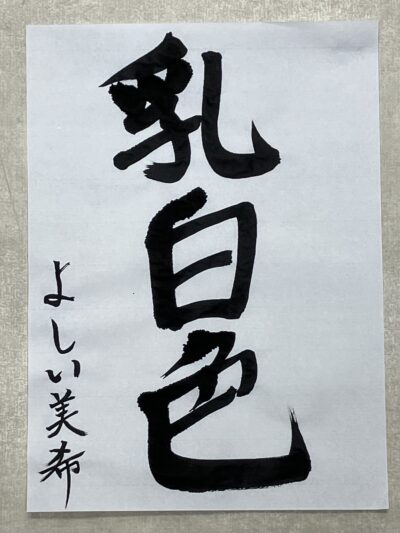 乳白色
よしい美希